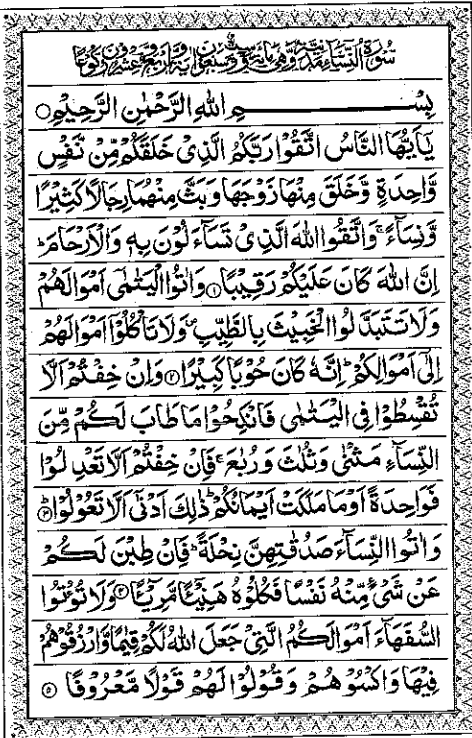 سُوْرَةُ النِّسَآءِ مَدَنِيَّةٌ وَّهِيَ مِائَةٌ وَّسِتٌّ وَّسَبْعُوْنَ اٰيَةً وَّاَرْبَعٌ وَّعِشْرُوْنَ رُكُوْعًا
بِسْمِ اللهِ الرَّحْمٰنِ الرَّحِيْمِ ○
يٰۤاَيُّهَا النَّاسُ اتَّقُوْا رَبَّكُمُ الَّذِيْ خَلَقَكُمْ مِّنْ نَّفْسٍ
وَّاحِدَةٍ وَّخَلَقَ مِنْهَا زَوْجَهَا وَبَثَّ مِنْهُمَا رِجَالًا كَثِيْرًا
وَّنِسَآءً ۚ وَاتَّقُوا اللهَ الَّذِيْ تَسَآءَلُوْنَ بِهٖ وَالْاَرْحَامَ ؕ
اِنَّ اللهَ كَانَ عَلَيْكُمْ رَقِيْبًا ۝۱ وَاٰتُوا الْيَتٰمٰۤى اَمْوَالَهُمْ
وَلَا تَتَبَدَّلُوا الْخَبِيْثَ بِالطَّيِّبِ ۪ وَلَا تَاْكُلُوْۤا اَمْوَالَهُمْ
اِلٰۤى اَمْوَالِكُمْ ؕ اِنَّهٗ كَانَ حُوْبًا كَبِيْرًا ۝۲ وَاِنْ خِفْتُمْ اَلَّا
تُقْسِطُوْا فِي الْيَتٰمٰى فَانْكِحُوْا مَا طَابَ لَكُمْ مِّنَ
النِّسَآءِ مَثْنٰى وَثُلٰثَ وَرُبٰعَ ۚ فَاِنْ خِفْتُمْ اَلَّا تَعْدِلُوْا
فَوَاحِدَةً اَوْ مَا مَلَكَتْ اَيْمَانُكُمْ ؕ ذٰلِكَ اَدْنٰۤى اَلَّا تَعُوْلُوْا ؕ ۝۳
وَاٰتُوا النِّسَآءَ صَدُقٰتِهِنَّ نِحْلَةً ؕ فَاِنْ طِبْنَ لَكُمْ
عَنْ شَيْءٍ مِّنْهُ نَفْسًا فَكُلُوْهُ هَنِيْٓئًا مَّرِيْٓئًا ۝۴ وَلَا تُؤْتُوا
السُّفَهَآءَ اَمْوَالَكُمُ الَّتِيْ جَعَلَ اللهُ لَكُمْ قِيٰمًا وَّارْزُقُوْهُمْ
فِيْهَا وَاكْسُوْهُمْ وَقُوْلُوْا لَهُمْ قَوْلًا مَّعْرُوْفًا ۝۵